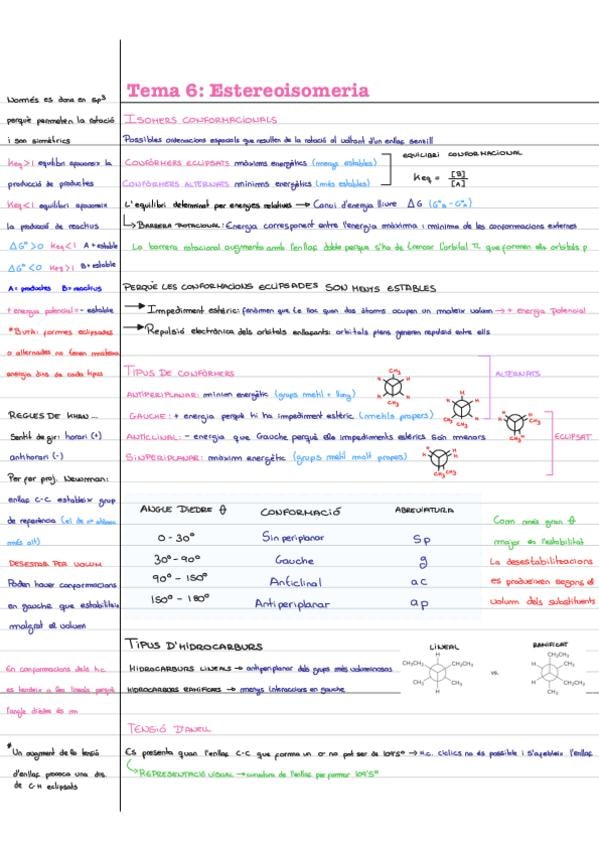 Tema 6: Estereoisomeria
Només es dona en sp³
perquè permeten la rotació
i son simètrics
Keq > 1 equilibri afavoreix la
producció de productes
Keq < 1 equilibri afavoreix
la producció de reactius
ΔG° > 0 Keq < 1 A + estable
ΔG° < 0 Keq > 1 B + estable
A = productes B = reactius
+ energia potencial = - estable
*Butà: formes eclipsades
o alternades no tenen mateixa
energia dins de cada tipus
REGLES DE KHAN...
Sentit de gir: horari (+)
antihorari (-)
Per fer proj. Newman:
enllaç C-C estableix grup
de referència (el de nº atòmic
més alt)
DESESTAB. PER VOLUM
Poden haver conformacions
en gauche que estabilitzin
malgrat el volum
En conformacions dels h.c.
es tendeix a fer lineals perquè
l'angle diedre és
* Un augment de la tensió
d'enllaç provoca una
de C-H eclipsats
ISOMERS CONFORMACIONALS
Possibles ordenacions espacials que resulten de la rotació al voltant d'un enllaç senzill
CONFÒRMERS ECLIPSATS màxims energètics (menys estables)
CONFÒRMERS ALTERNATS mínims energètics (més estables)
EQUILIBRI CONFORMACIONAL
Keq = [B] / [A]
L'equilibri determinat per energies relatives → Canvi d'energia lliure ΔG (G°B - G°A)
BARRERA ROTACIONAL: Energia corresponent entre l'energia màxima i mínima de les conformacions extremes
La barrera rotacional augmenta amb l'enllaç doble perquè s'ha de trencar l'orbital π que formen els orbitals p
PERQUÈ LES CONFORMACIONS ECLIPSADES SON MENYS ESTABLES
→ Impediment estèric: fenòmen que té lloc quan dos àtoms ocupen un mateix volum → + energia potencial
→ Repulsió electrònica dels orbitals enllaçants: orbitals plens generen repulsió entre ells
TIPUS DE CONFÒRMERS
ALTERNATS
ANTIPERIPLANAR: mínim energètic (grups metil + lluny)
GAUCHE: + energia perquè hi ha impediment estèric (metils propers)
ANTICLINAL: - energia que Gauche perquè els impediments estèrics són menors
ECLIPSAT
SINPERIPLANAR: màxim energètic (grups metil molt propers)
ANGLE DIEDRE θ CONFORMACIÓ ABREVIATURA
0 - 30° Sinperiplanar sp
30° - 90° Gauche g
90° - 150° Anticlinal ac
150° - 180° Antiperiplanar ap
Com més gran θ
major és l'estabilitat
La desestabilitzacions
es produeixen segons el
volum dels substituents
TIPUS D'HIDROCARBURS
HIDROCARBURS LINEALS → antiperiplanar dels grups més voluminosos
HIDROCARBURS RAMIFICATS → menys interaccions en gauche
LINEAL
RAMIFICAT
vs.
TENSIÓ D'ANELL
Es presenta quan l'enllaç C-C que forma un no pot ser de 109'5° → H.c. cíclics no és possible i s'afebleix l'enllaç
REPRESENTACIÓ VISUAL → curvatura de l'enllaç per formar 109'5°